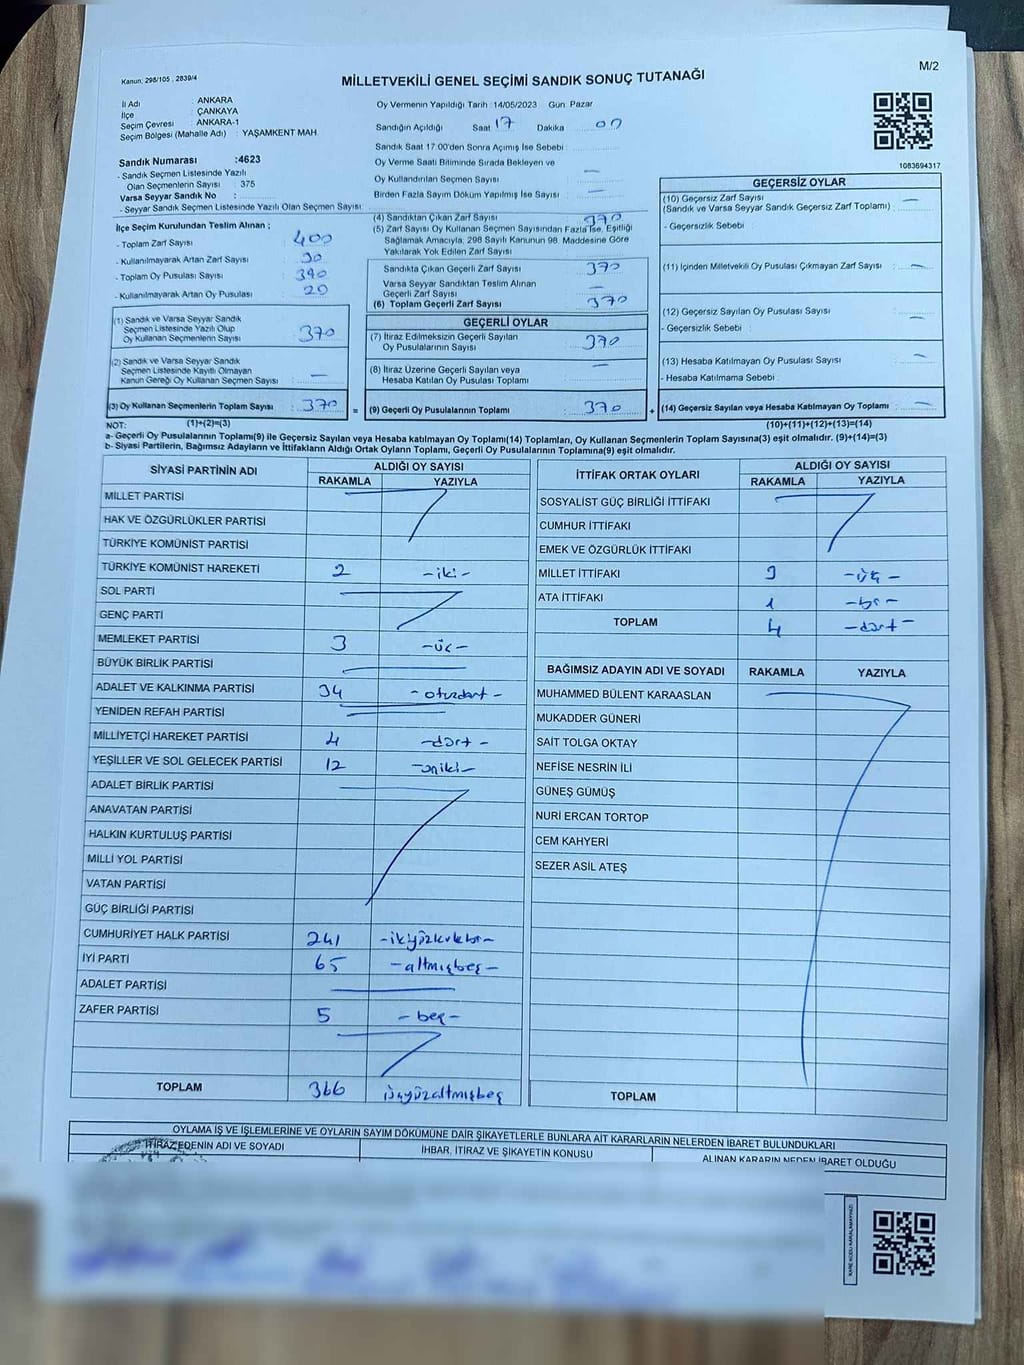 M/2
Kanun; 298/105 , 2839/4
MİLLETVEKİLİ GENEL SEÇİMİ SANDIK SONUÇ TUTANAĞI
İl Adı : ANKARA
İlçe : ÇANKAYA
Seçim Çevresi : ANKARA-1
Seçim Bölgesi (Mahalle Adı) : YAŞAMKENT MAH.
Sandık Numarası :4623
- Sandık Seçmen Listesinde Yazılı
Olan Seçmenlerin Sayısı : 375
Varsa Seyyar Sandık No :
- Seyyar Sandık Seçmen Listesinde Yazılı Olan Seçmen Sayısı:
Oy Vermenin Yapıldığı Tarih : 14/05/2023 Gün Pazar
Sandığın Açıldığı Saat 17 Dakika : 00
Sandık Saat 17:00'den Sonra Açımış İse Sebebi :
Oy Verme Saati Bitiminde Sırada Bekleyen ve
Oy Kullandırılan Seçmen Sayısı : —
Birden Fazla Sayım Döküm Yapılmış İse Sayısı : —
1083694317
İlçe Seçim Kurulundan Teslim Alınan ;
- Toplam Zarf Sayısı : 400
- Kullanılmayarak Artan Zarf Sayısı : 30
- Toplam Oy Pusulası Sayısı : 390
- Kullanılmayarak Artan Oy Pusulası : 20
(1) Sandık ve Varsa Seyyar Sandık
Seçmen Listesinde Yazılı Olup
Oy Kullanan Seçmenlerin Sayısı : 370
(2) Sandık ve Varsa Seyyar Sandık
Seçmen Listesinde Kayıtlı Olmayan
Kanun Gereği Oy Kullanan Seçmen Sayısı : —
(3) Oy Kullanan Seçmenlerin Toplam Sayısı : 370 =
(1)+(2)=(3)
(4) Sandıktan Çıkan Zarf Sayısı : 370
(5) Zarf Sayısı Oy Kullanan Seçmen Sayısından Fazla İse, Eşitliği
Sağlamak Amacıyla, 298 Sayılı Kanunun 98. Maddesine Göre
Yakılarak Yok Edilen Zarf Sayısı
Sandıkta Çıkan Geçerli Zarf Sayısı : 370
Varsa Seyyar Sandıktan Teslim Alınan
Geçerli Zarf Sayısı : —
(6) Toplam Geçerli Zarf Sayısı : 370
GEÇERLİ OYLAR
(7) İtiraz Edilmeksizin Geçerli Sayılan
Oy Pusulalarının Sayısı : 370
(8) İtiraz Üzerine Geçerli Sayılan veya
Hesaba Katılan Oy Pusulası Toplamı : —
(9) Geçerli Oy Pusulalarının Toplamı : 370 +
GEÇERSİZ OYLAR
(10) Geçersiz Zarf Sayısı : —
(Sandık ve Varsa Seyyar Sandık Geçersiz Zarf Toplamı)
- Geçersizlik Sebebi :
(11) İçinden Milletvekili Oy Pusulası Çıkmayan Zarf Sayısı : —
(12) Geçersiz Sayılan Oy Pusulası Sayısı : —
- Geçersizlik Sebebi :
(13) Hesaba Katılmayan Oy Pusulası Sayısı : —
- Hesaba Katılmama Sebebi :
(14) Geçersiz Sayılan veya Hesaba Katılmayan Oy Toplamı : —
(10)+(11)+(12)+(13)=(14)
NOT:
a- Geçerli Oy Pusulalarının Toplamı(9) ile Geçersiz Sayılan veya Hesaba katılmayan Oy Toplamı(14) Toplamları, Oy Kullanan Seçmenlerin Toplam Sayısına(3) eşit olmalıdır. (9)+(14)=(3)
b- Siyasi Partilerin, Bağımsız Adayların ve İttifakların Aldığı Ortak Oyların Toplamı, Geçerli Oy Pusulalarının Toplamına(9) eşit olmalıdır.
SİYASİ PARTİNİN ADI ALDIĞI OY SAYISI
RAKAMLA YAZIYLA
MİLLET PARTİSİ
HAK VE ÖZGÜRLÜKLER PARTİSİ
TÜRKİYE KOMÜNİST PARTİSİ
TÜRKİYE KOMÜNİST HAREKETİ 2 -iki-
SOL PARTİ
GENÇ PARTİ
MEMLEKET PARTİSİ 3 -üç-
BÜYÜK BİRLİK PARTİSİ
ADALET VE KALKINMA PARTİSİ 34 -otuzdört-
YENİDEN REFAH PARTİSİ
MİLLİYETÇİ HAREKET PARTİSİ 4 -dört-
YEŞİLLER VE SOL GELECEK PARTİSİ 12 -oniki-
ADALET BİRLİK PARTİSİ
ANAVATAN PARTİSİ
HALKIN KURTULUŞ PARTİSİ
MİLLİ YOL PARTİSİ
VATAN PARTİSİ
GÜÇ BİRLİĞİ PARTİSİ
CUMHURİYET HALK PARTİSİ 241 -ikiyüzkırkbir-
İYİ PARTİ 65 -altmışbeş-
ADALET PARTİSİ
ZAFER PARTİSİ 5 -beş-
TOPLAM 366 üçyüzaltmışbeş
İTTİFAK ORTAK OYLARI ALDIĞI OY SAYISI
RAKAMLA YAZIYLA
SOSYALİST GÜÇ BİRLİĞİ İTTİFAKI
CUMHUR İTTİFAKI
EMEK VE ÖZGÜRLÜK İTTİFAKI
MİLLET İTTİFAKI 3 -üç-
ATA İTTİFAKI 1 -bir-
TOPLAM 4 -dört-
BAĞIMSIZ ADAYIN ADI VE SOYADI RAKAMLA YAZIYLA
MUHAMMED BÜLENT KARAASLAN
MUKADDER GÜNERİ
SAİT TOLGA OKTAY
NEFİSE NESRİN İLİ
GÜNEŞ GÜMÜŞ
NURİ ERCAN TORTOP
CEM KAHYERİ
SEZER ASİL ATEŞ
TOPLAM
OYLAMA İŞ VE İŞLEMLERİNE VE OYLARIN SAYIM DÖKÜMÜNE DAİR ŞİKAYETLERLE BUNLARA AİT KARARLARIN NELERDEN İBARET BULUNDUKLARI
İTİRAZ EDENİN ADI VE SOYADI İHBAR, İTİRAZ VE ŞİKAYETİN KONUSU ALINAN KARARIN NEDEN İBARET OLDUĞU
KARE KODU KARALAMAYINIZ!